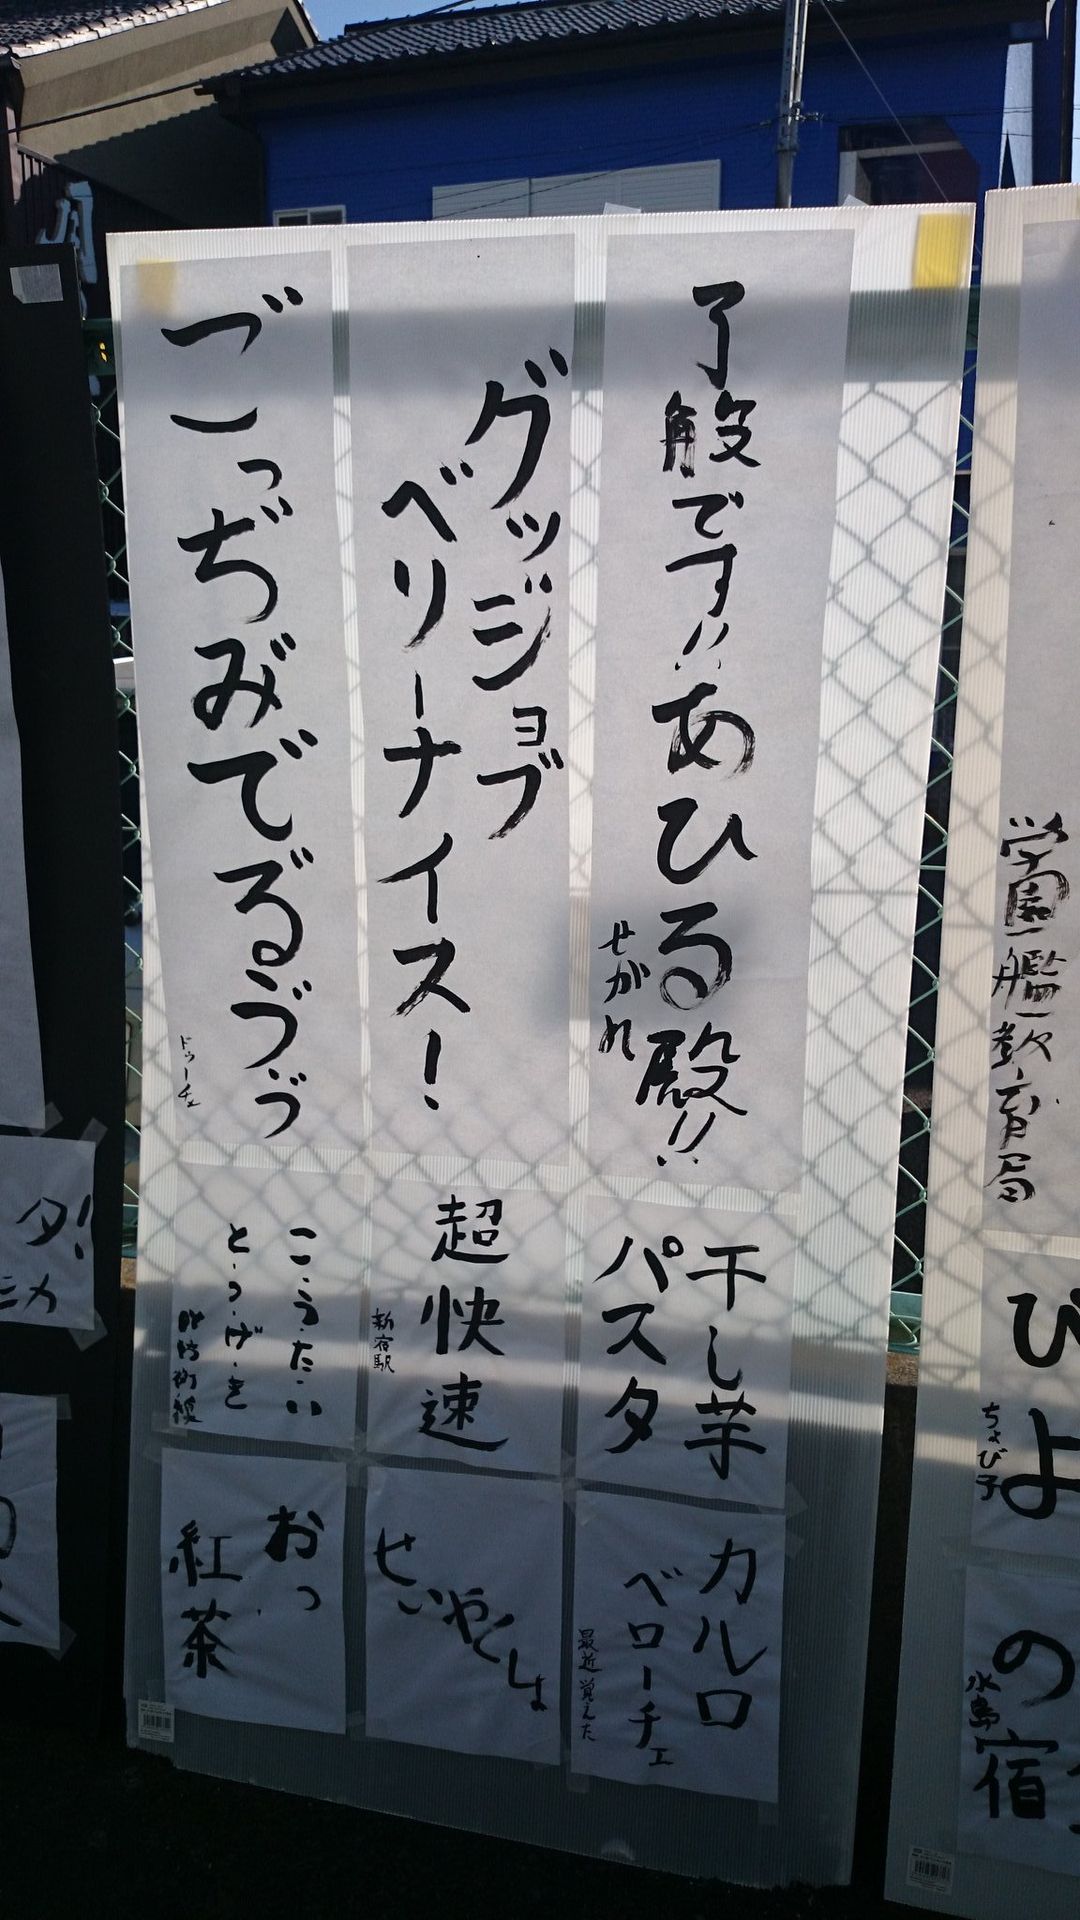 了般です!!あひる殿!!
せがれ
グッジョブ
ベリーナイス!
づこっぢみでるゔゔ
ドゥーチェ
干し芋
パスタ
超快速
新宿駅
こ・う・た・い
と・つ・げ・き
カルロ
ベローチェ
最近覚えた
せいやくしょ
おっ
紅茶
学園艦教育局
びよ
ちよび子
の宿
水島
タ!
ニカ